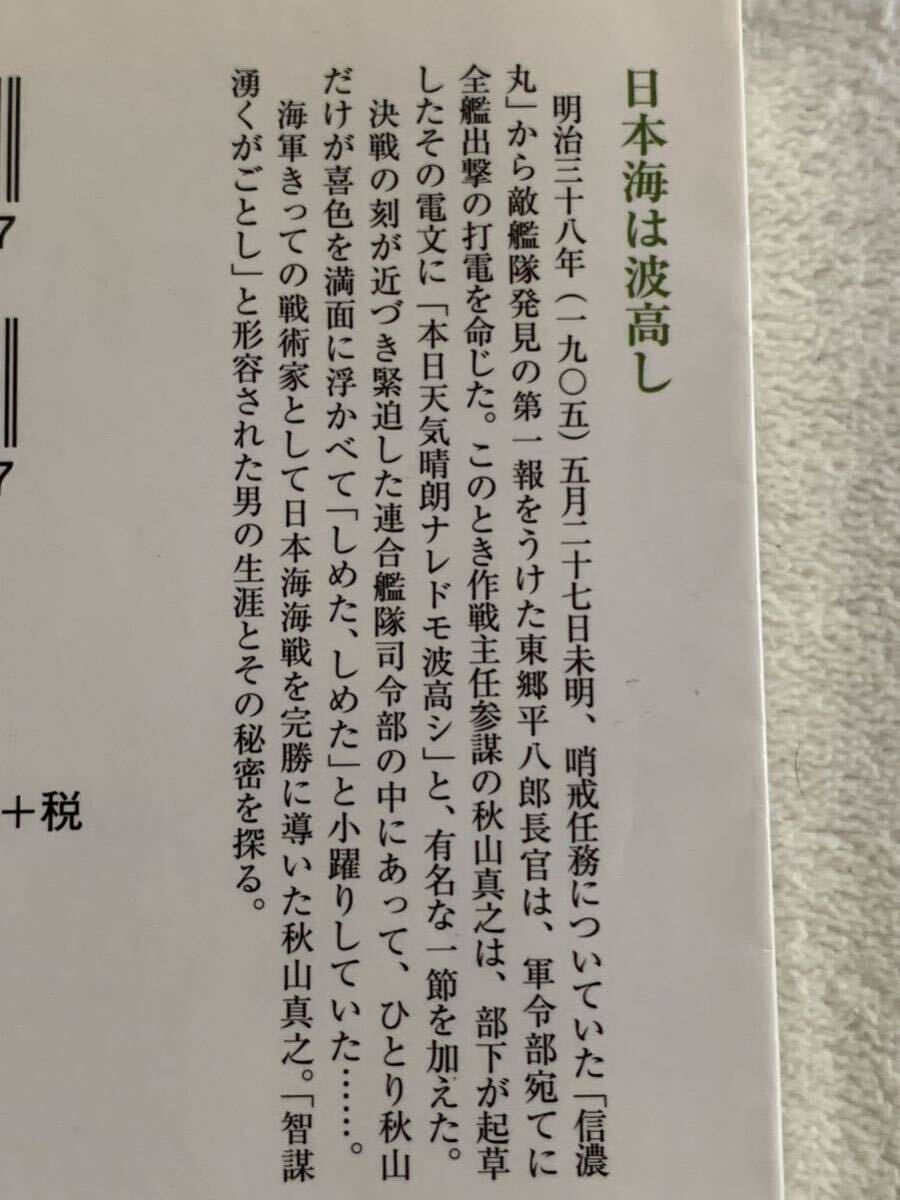 日本海は波高し
明治三十八年（一九〇五）五月二十七日未明、哨戒任務についていた「信濃
丸」から敵艦隊発見の第一報をうけた東郷平八郎長官は、軍令部宛てに
全艦出撃の打電を命じた。このとき作戦主任参謀の秋山真之は、部下が起草
したその電文に「本日天気晴朗ナレドモ波高シ」と、有名な一節を加えた。
決戦の刻が近づき緊迫した連合艦隊司令部の中にあって、ひとり秋山
だけが喜色を満面に浮かべて「しめた、しめた」と小躍りしていた……。
海軍きっての戦術家として日本海海戦を完勝に導いた秋山真之。「智謀
湧くがごとし」と形容された男の生涯とその秘密を探る。
7
7
＋税